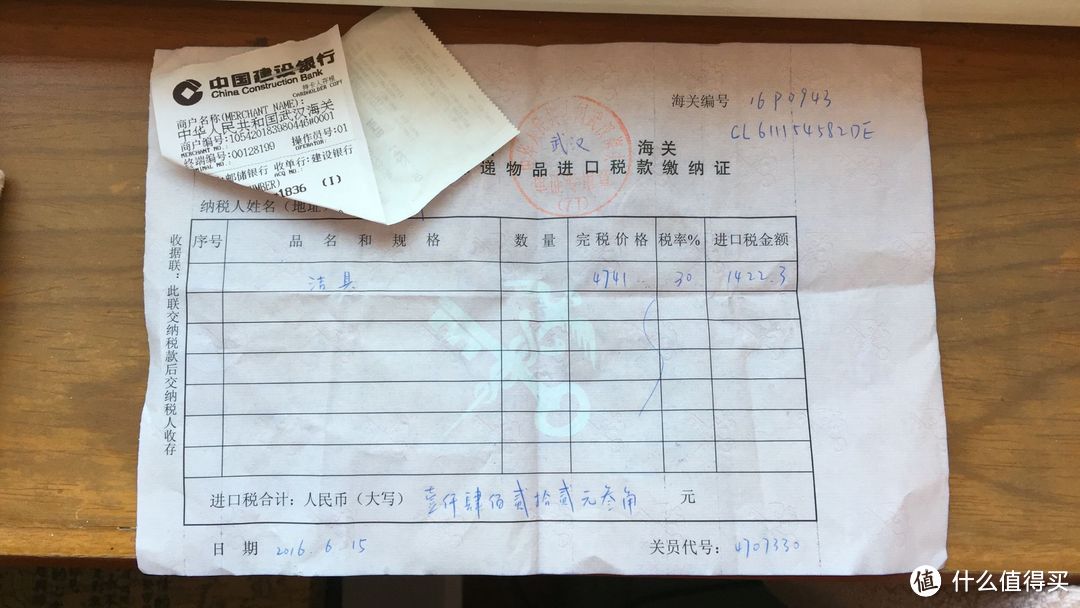 中国建设银行
China Construction Bank
持卡人存根
CARDHOLDER COPY
商户名称(MERCHANT NAME):
中华人民共和国武汉海关
商户编号:105420183980446#0001
MERCHANT NO.:
终端编号:00128199 操作员号:01
OPERATOR:
邮储银行 收单行:建设银行
ACQ NO.:
1836 (I)
海关编号 16P0943
CL611154582DE
武汉 海关
递物品进口税款缴纳证
纳税人姓名(地址
序号 品名和规格 数量 完税价格 税率% 进口税金额
洁具 4741 30 1422.3
进口税合计:人民币(大写) 壹仟肆佰贰拾贰元叁角 元
日期 2016.6.15 关员代号: 4707330
收据联:此联交纳税款后交纳税人收存
值 什么值得买